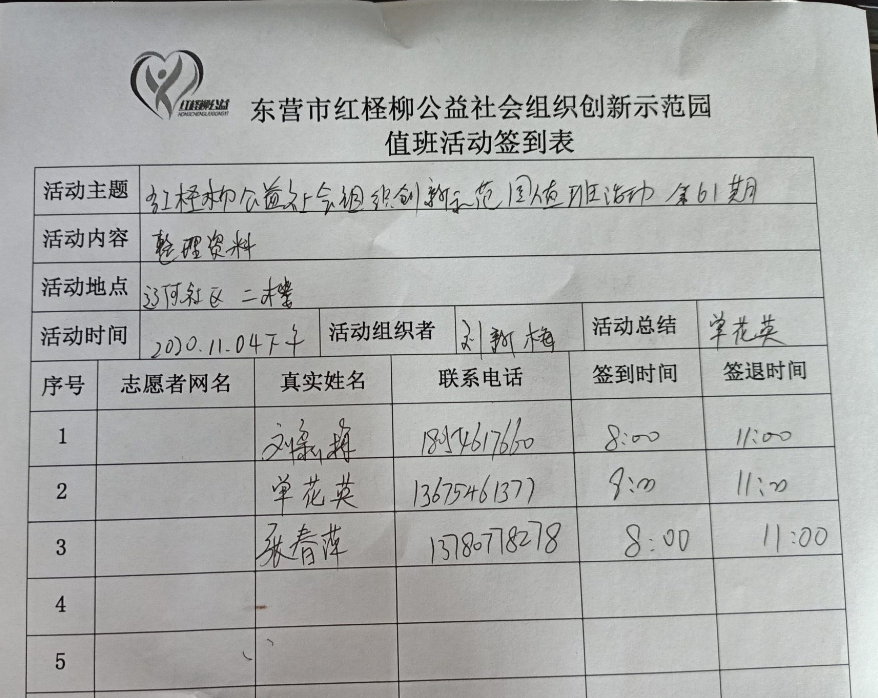 红柽柳公益
HONGCHENGLIUGONGYI
东营市红柽柳公益社会组织创新示范园
值班活动签到表
活动主题 红柽柳公益社会组织创新示范园值班活动 第61期
活动内容 整理资料
活动地点 辽河社区 二楼
活动时间 2020.11.04下午 活动组织者 刘新梅 活动总结 单花英
序号 志愿者网名 真实姓名 联系电话 签到时间 签退时间
1 刘新梅 18954617660 8:00 11:00
2 单花英 13675461377 8:00 11:00
3 张春萍 13780778278 8:00 11:00
4
5